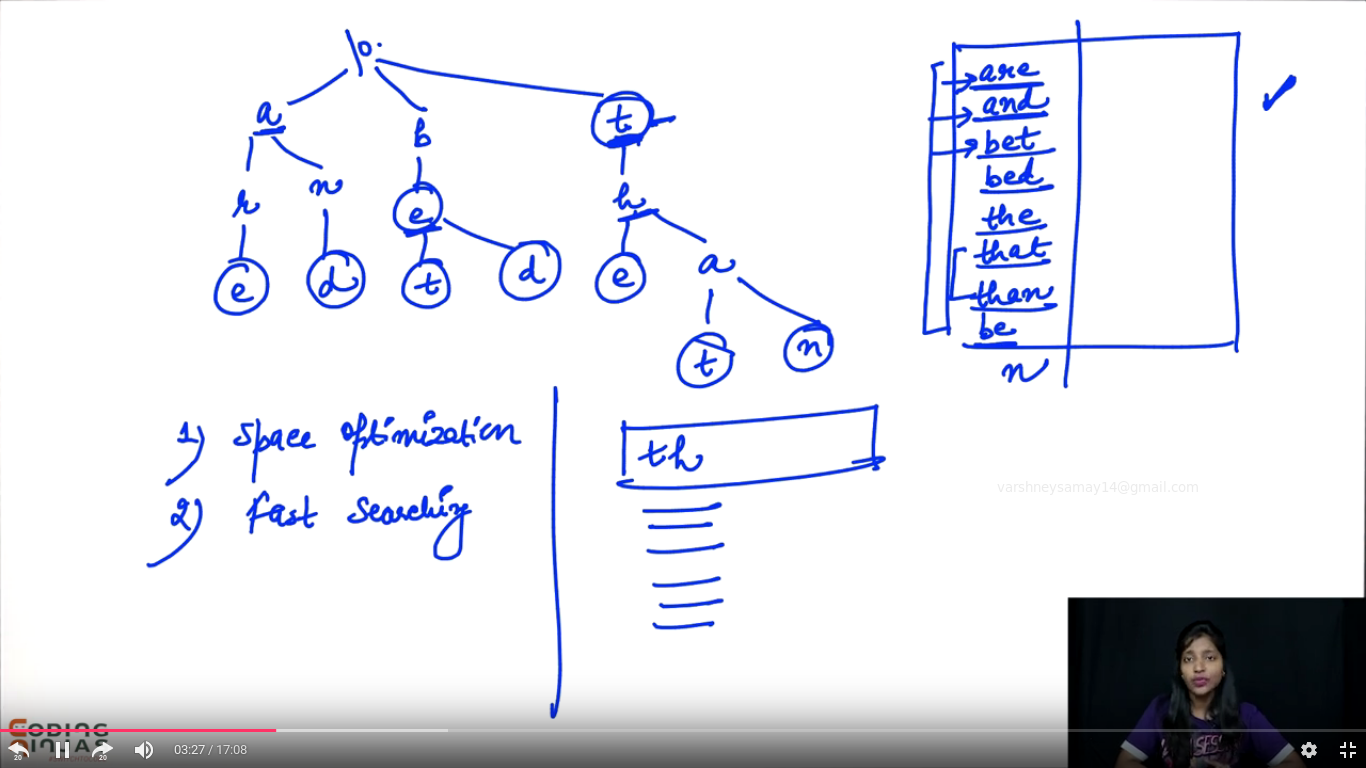 \0.
a
b
t
r
n
e
h
e
d
t
d
e
a
t
n
are
and
bet
bed
the
that
than
be
n
1) Space optimization
2) Fast Searching
th
varshneysamay14@gmail.com
CODING
NINJAS
20
20
03:27 / 17:08